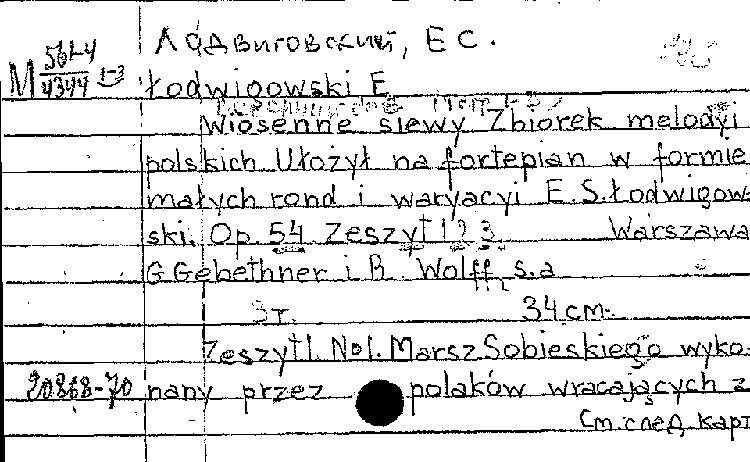 Лодвиговский, Е С.
M 561-4/4344 1-3
Łodwigowski E
Wiosenne siewy Zbiorek melodyi
polskich Ułożył na fortepian w formie
małych rond i waryacyi E.S.Łodwigow-
ski. Op. 54 Zeszyt 1 2 3. Warszawa
G. Gebethner i R. Wolff s.a
3т. 34 см.
Zeszyt 1. No 1. Marsz Sobieskiego wyko-
20868-70 nany przez polaków wracających z
См. след. карт